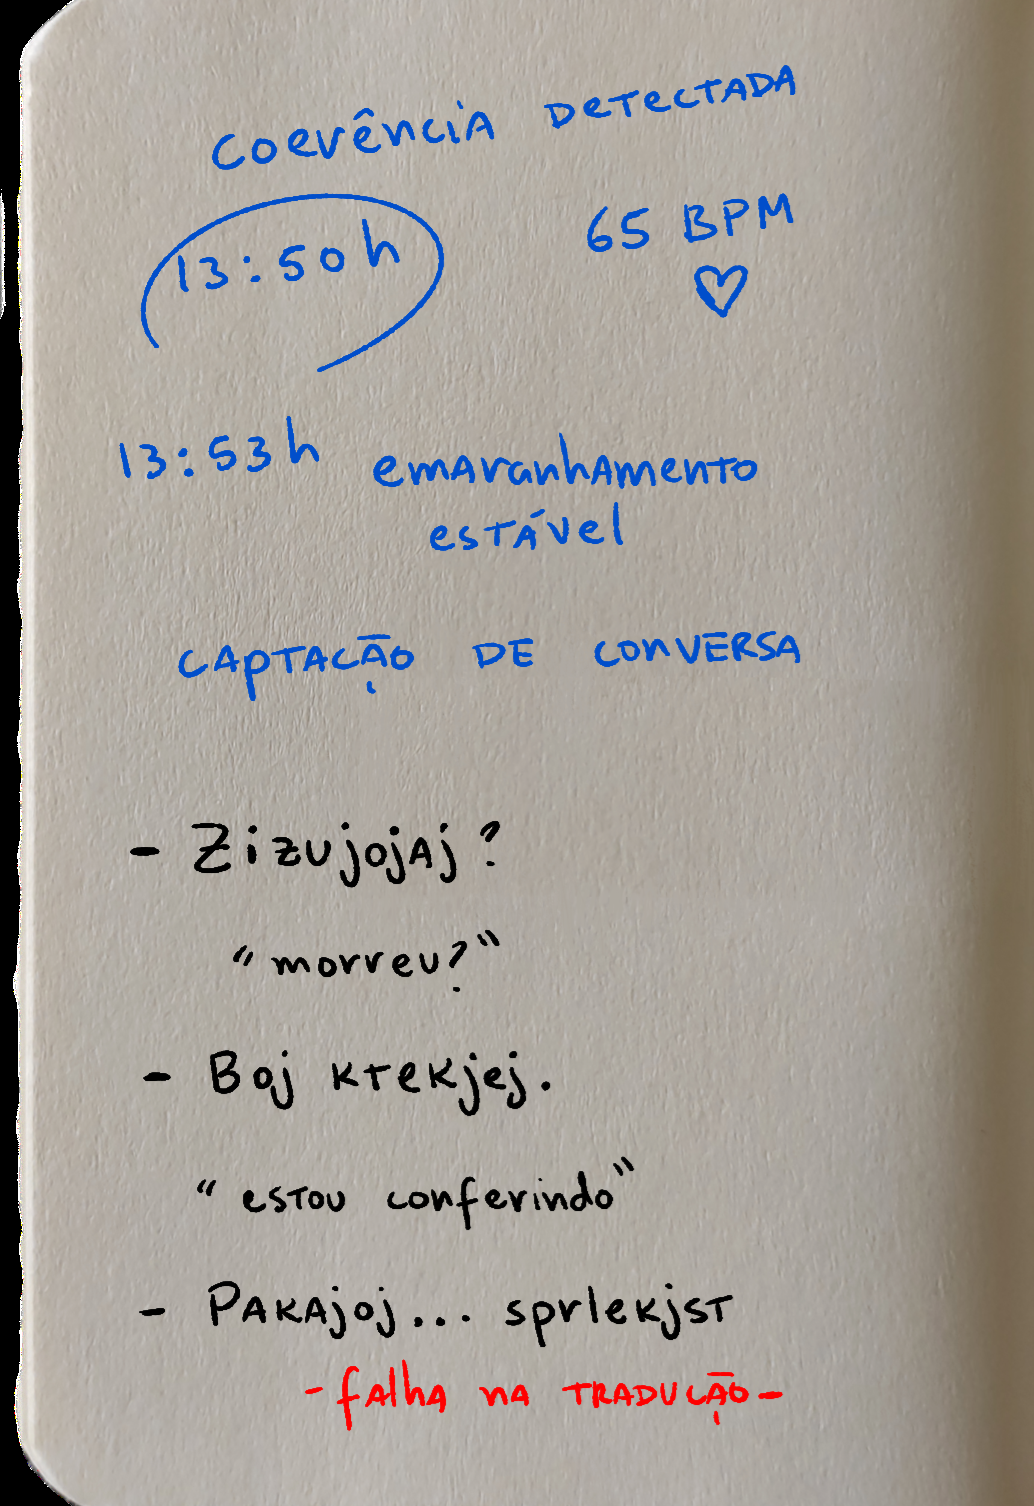 coerência DETECTADA
13:50h
65 BPM
13:53h emaranhamento
estável
CAPTAÇÃO DE CONVERSA
- Zizujojaj?
"morreu?"
- Boj ktekjej.
"estou conferindo"
- Pakajoj... sprlekjst
-falha na TRADUÇÃO-